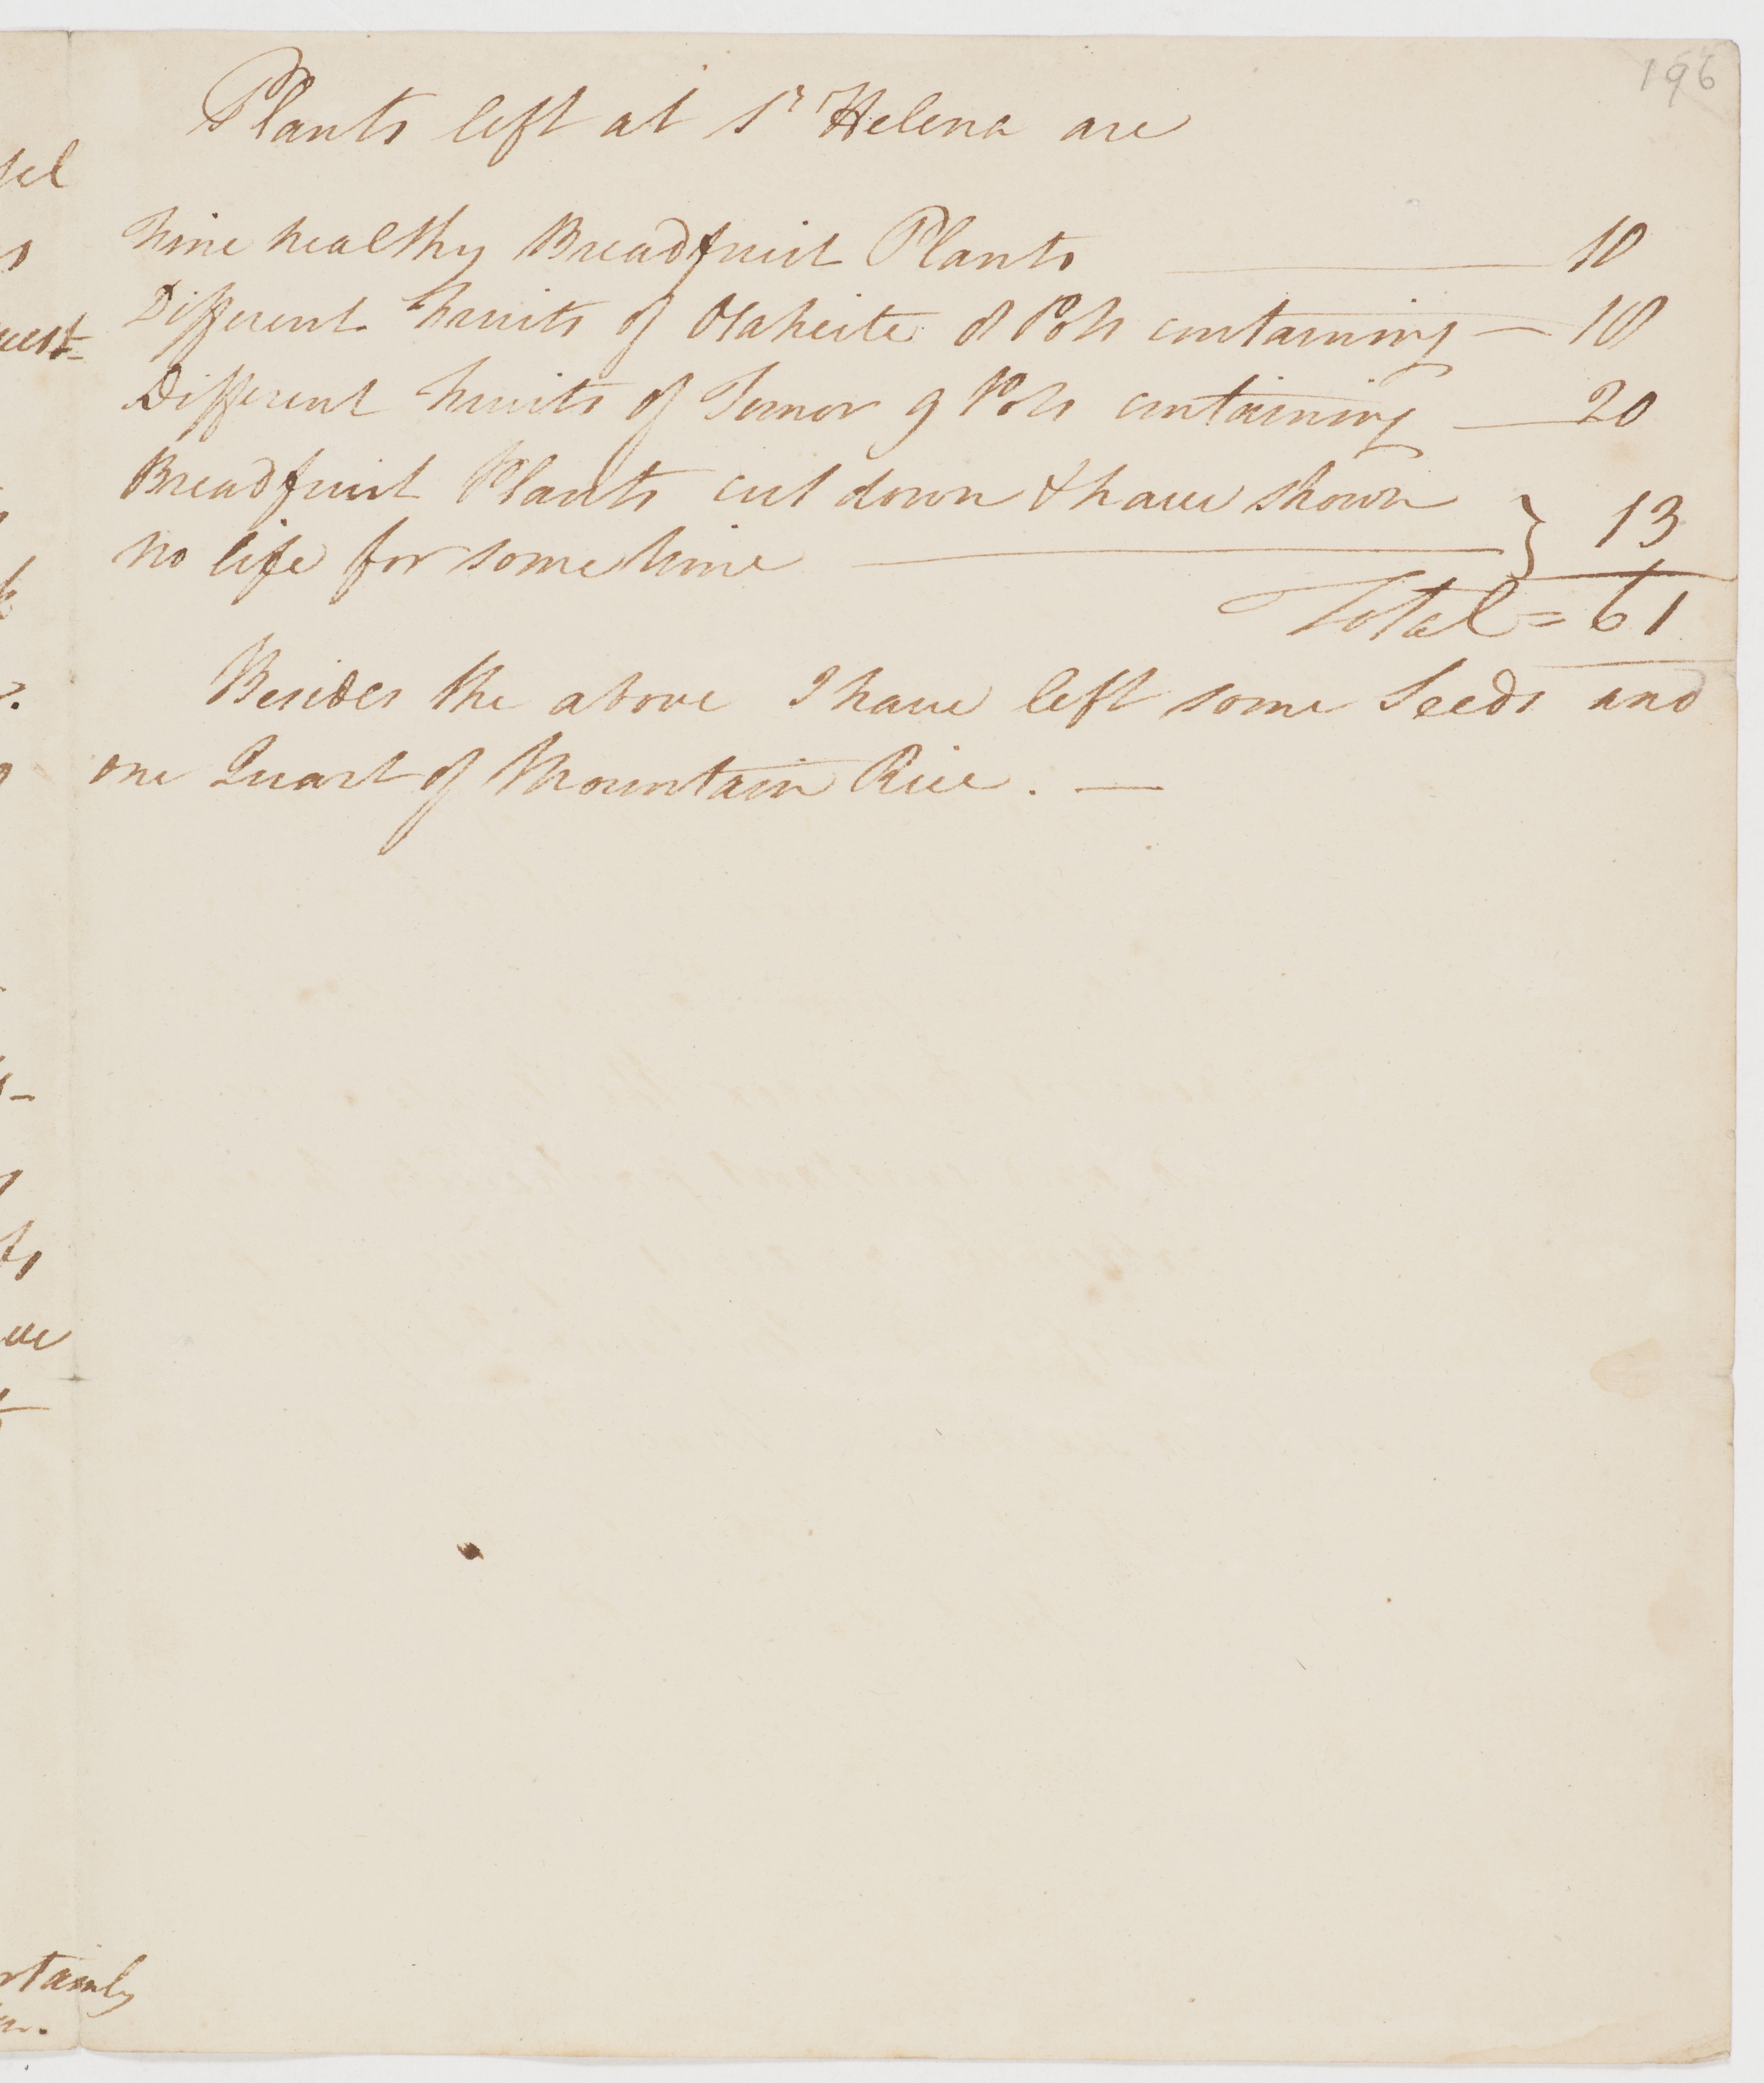 196
Plants left at St Helena are
Fine healthy Breadfruit Plants — 10
Different Fruits of Otaheite 8 Pots containing — 18
Different Fruits of Timor 9 Pots containing — 20
Breadfruit Plants cut down & have shown
no life for some time — } 13
Total = 61
Besides the above I have left some Seeds and
one Quart of Mountain Rice. —